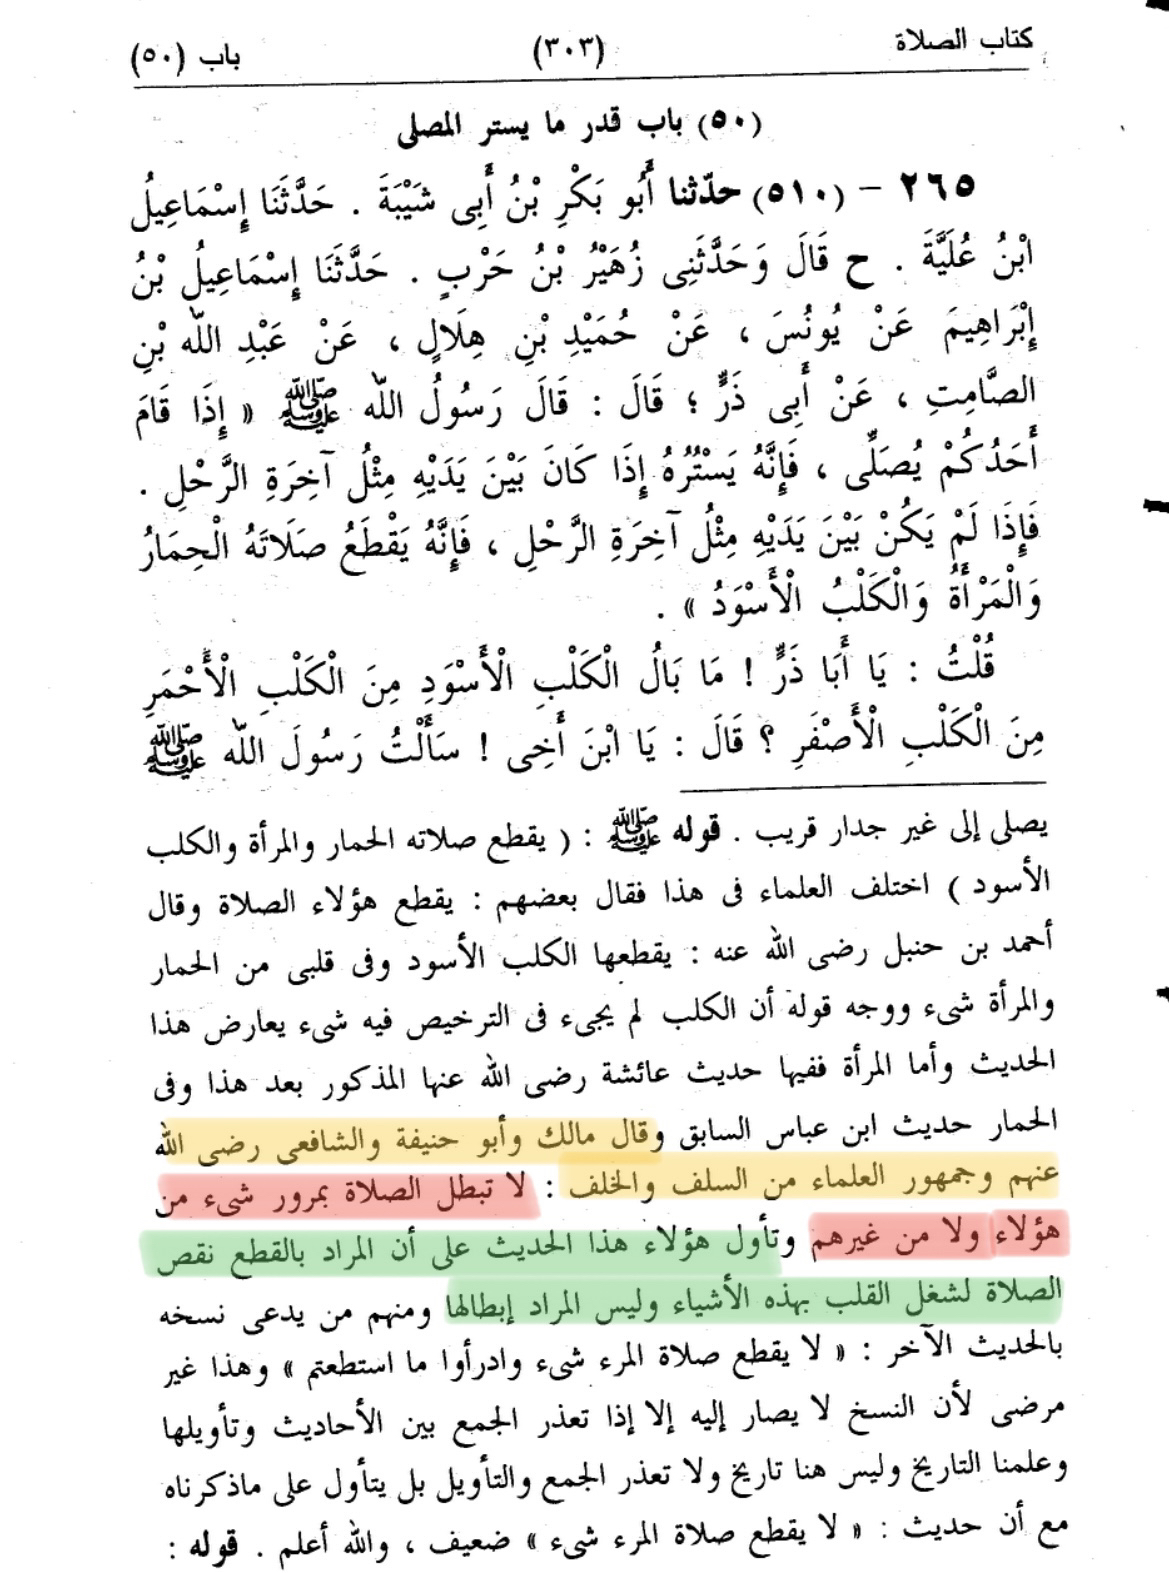 كتاب الصلاة (٣٠٣) باب (٥٠)
(٥٠) باب قدر ما يستر المصلى
٢٦٥ – (٥١٠) حدّثنا أَبُو بَكْرِ بْنُ أَبِى شَيْبَةَ . حَدَّثَنَا إِسْمَاعِيلُ
ابْنُ عُلَيَّةَ . ح قَالَ وَحَدَّثَنِى زُهَيْرُ بْنُ حَرْبٍ . حَدَّثَنَا إِسْمَاعِيلُ بْنُ
إِبْرَاهِيمَ عَنْ يُونُسَ ، عَنْ حُمَيْدِ بْنِ هِلَالٍ ، عَنْ عَبْدِ اللّٰه بْنِ
الصَّامِتِ ، عَنْ أَبِى ذَرٍّ ؛ قَالَ : قَالَ رَسُولُ اللّٰه ﷺ « إِذَا قَامَ
أَحَدُكُمْ يُصَلِّى ، فَإِنَّهُ يَسْتُرُهُ إِذَا كَانَ بَيْنَ يَدَيْهِ مِثْلُ آخِرَةِ الرَّحْلِ .
فَإِذَا لَمْ يَكُنْ بَيْنَ يَدَيْهِ مِثْلُ آخِرَةِ الرَّحْلِ ، فَإِنَّهُ يَقْطَعُ صَلَاتَهُ الْحِمَارُ
وَالْمَرْأَةُ وَالْكَلْبُ الْأَسْوَدُ » .
قُلْتُ : يَا أَبَا ذَرٍّ ! مَا بَالُ الْكَلْبِ الْأَسْوَدِ مِنَ الْكَلْبِ الْأَحْمَرِ
مِنَ الْكَلْبِ الْأَصْفَرِ ؟ قَالَ : يَا ابْنَ أَخِى ! سَأَلْتُ رَسُولَ اللّٰه ﷺ
يصلى إلى غير جدار قريب . قوله ﷺ : ( يقطع صلاته الحمار والمرأة والكلب
الأسود ) اختلف العلماء فى هذا فقال بعضهم : يقطع هؤلاء الصلاة وقال
أحمد بن حنبل رضى الله عنه : يقطعها الكلب الأسود وفى قلبى من الحمار
والمرأة شىء ووجه قوله أن الكلب لم يجىء فى الترخيص فيه شىء يعارض هذا
الحديث وأما المرأة ففيها حديث عائشة رضى الله عنها المذكور بعد هذا وفى
الحمار حديث ابن عباس السابق وقال مالك وأبو حنيفة والشافعى رضى الله
عنهم وجمهور العلماء من السلف والخلف : لا تبطل الصلاة بمرور شىء من
هؤلاء ولا من غيرهم وتأول هؤلاء هذا الحديث على أن المراد بالقطع نقص
الصلاة لشغل القلب بهذه الأشياء وليس المراد إبطالها ومنهم من يدعى نسخه
بالحديث الآخر : « لا يقطع صلاة المرء شىء وادرأوا ما استطعتم » وهذا غير
مرضى لأن النسخ لا يصار إليه إلا إذا تعذر الجمع بين الأحاديث وتأويلها
وعلمنا التاريخ وليس هنا تاريخ ولا تعذر الجمع والتأويل بل يتأول على ماذكرناه
مع أن حديث : « لا يقطع صلاة المرء شىء » ضعيف ، والله أعلم . قوله :